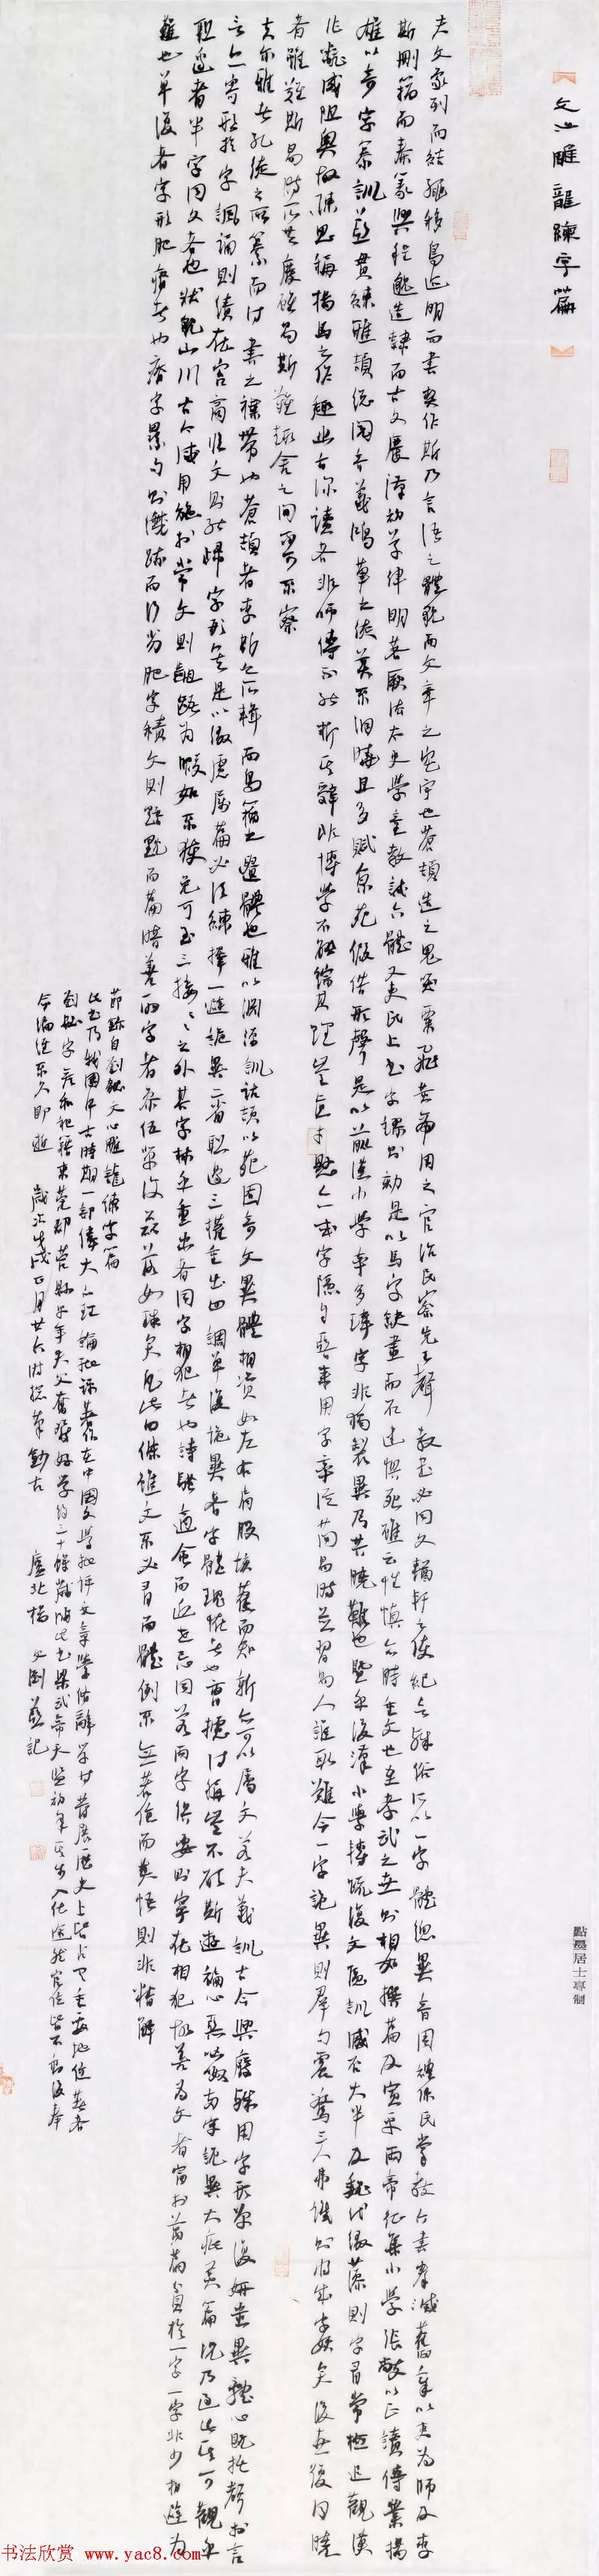 文心雕龍練字篇
夫文象列而結繩移鳥跡明而書契作斯乃言語之體貌而文章之宅宇也蒼頡造之鬼哭粟飛黃帝用之官治民察先王聲教書必同文輶軒之使紀言殊俗所以一字體總異音周禮保氏掌教六書秦滅舊章以吏為師及李
斯刪籀而秦篆興程邈造隸而古文廢漢初草律明著厥法太史學童教試六體又吏民上書字謬則劾是以馬字缺畫而石建懼死雖云性慎亦時重文也至孝武之世則相如撰篇及宣平兩帝征集小學張敞以正讀傳業揚
雄以奇字纂訓並貫練雅頡總閱音義鴻筆之徒莫不洞曉且多賦京苑假借形聲是以前漢小學率多瑋字非獨製異乃共曉難也暨乎後漢小學轉疏復文隱訓臧否大半及魏代綴藻則字有常檢追觀漢
作翻成阻奧故陳思稱揚馬之作趣幽旨深讀者非師傳不能析其辭非博學不能綜其理豈直才懸亦或字隱自晉來用字率從簡易時並習易人誰取難今一字詭異則群句震驚三人弗識則將成字妖矣後世所同曉
者雖難斯易時所共廢雖易斯難趣舍之間不可不察
夫爾雅者孔徒之所纂而詩書之襟帶也蒼頡者李斯之所輯而鳥籀之遺體也雅以淵源訓詁頡以苑囿奇文異體相資如左右肩股該舊而知新亦可以屬文若夫義訓古今興廢殊用字形單復妍媸異體心既托聲於言
言亦寄形於字諷誦則績在宮商臨文則能歸字形矣是以綴慮屬篇必須練擇一避詭異二省聯邊三權重出四調單復詭異者字體瑰怪者也曹攄詩稱豈不願斯遊褊心惡吶呶兩字詭異大疵美篇況乃過此其可觀乎
聯邊者半字同文者也狀貌山川古今咸用施於常文則齟齬為瑕如不獲免可至三接三接之外其字林乎重出者同字相犯者也詩騷適會而近世忌同若兩字俱要則寧在相犯故善為文者富於萬篇貧於一字一字非少相避為
難也單復者字形肥瘠者也瘠字累句則纖疏而行劣肥字積文則黯黕而篇暗善酌字者參伍單復磊落如珠矣凡此四條雖文不必有而體例不無若值而莫悟則非精解
節錄自劉勰文心雕龍練字篇
此書乃我國中古時期一部偉大的理論批評著作在中國文學批評文章學修辭學發展歷史上皆具重要地位
劉勰字彥和
點墨居士專制
书法欣赏 www.yac8.com